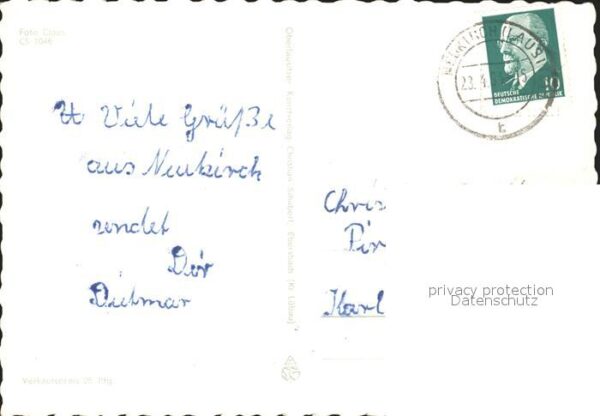 Foto Claus
CS 1046
Viele Grüße
aus Neukirch
sendet
Dir
Dietmar
Oberlausitzer Kunstverlag Christian Schubert, Ebersbach (Kr. Löbau)
Verkaufspreis 25 Pfg.
NEUKIRCH (LAUSITZ)
23.4.
t
10
DEUTSCHE
DEMOKRATISCHE
Chris
Pir
Karl
privacy protection
Datenschutz